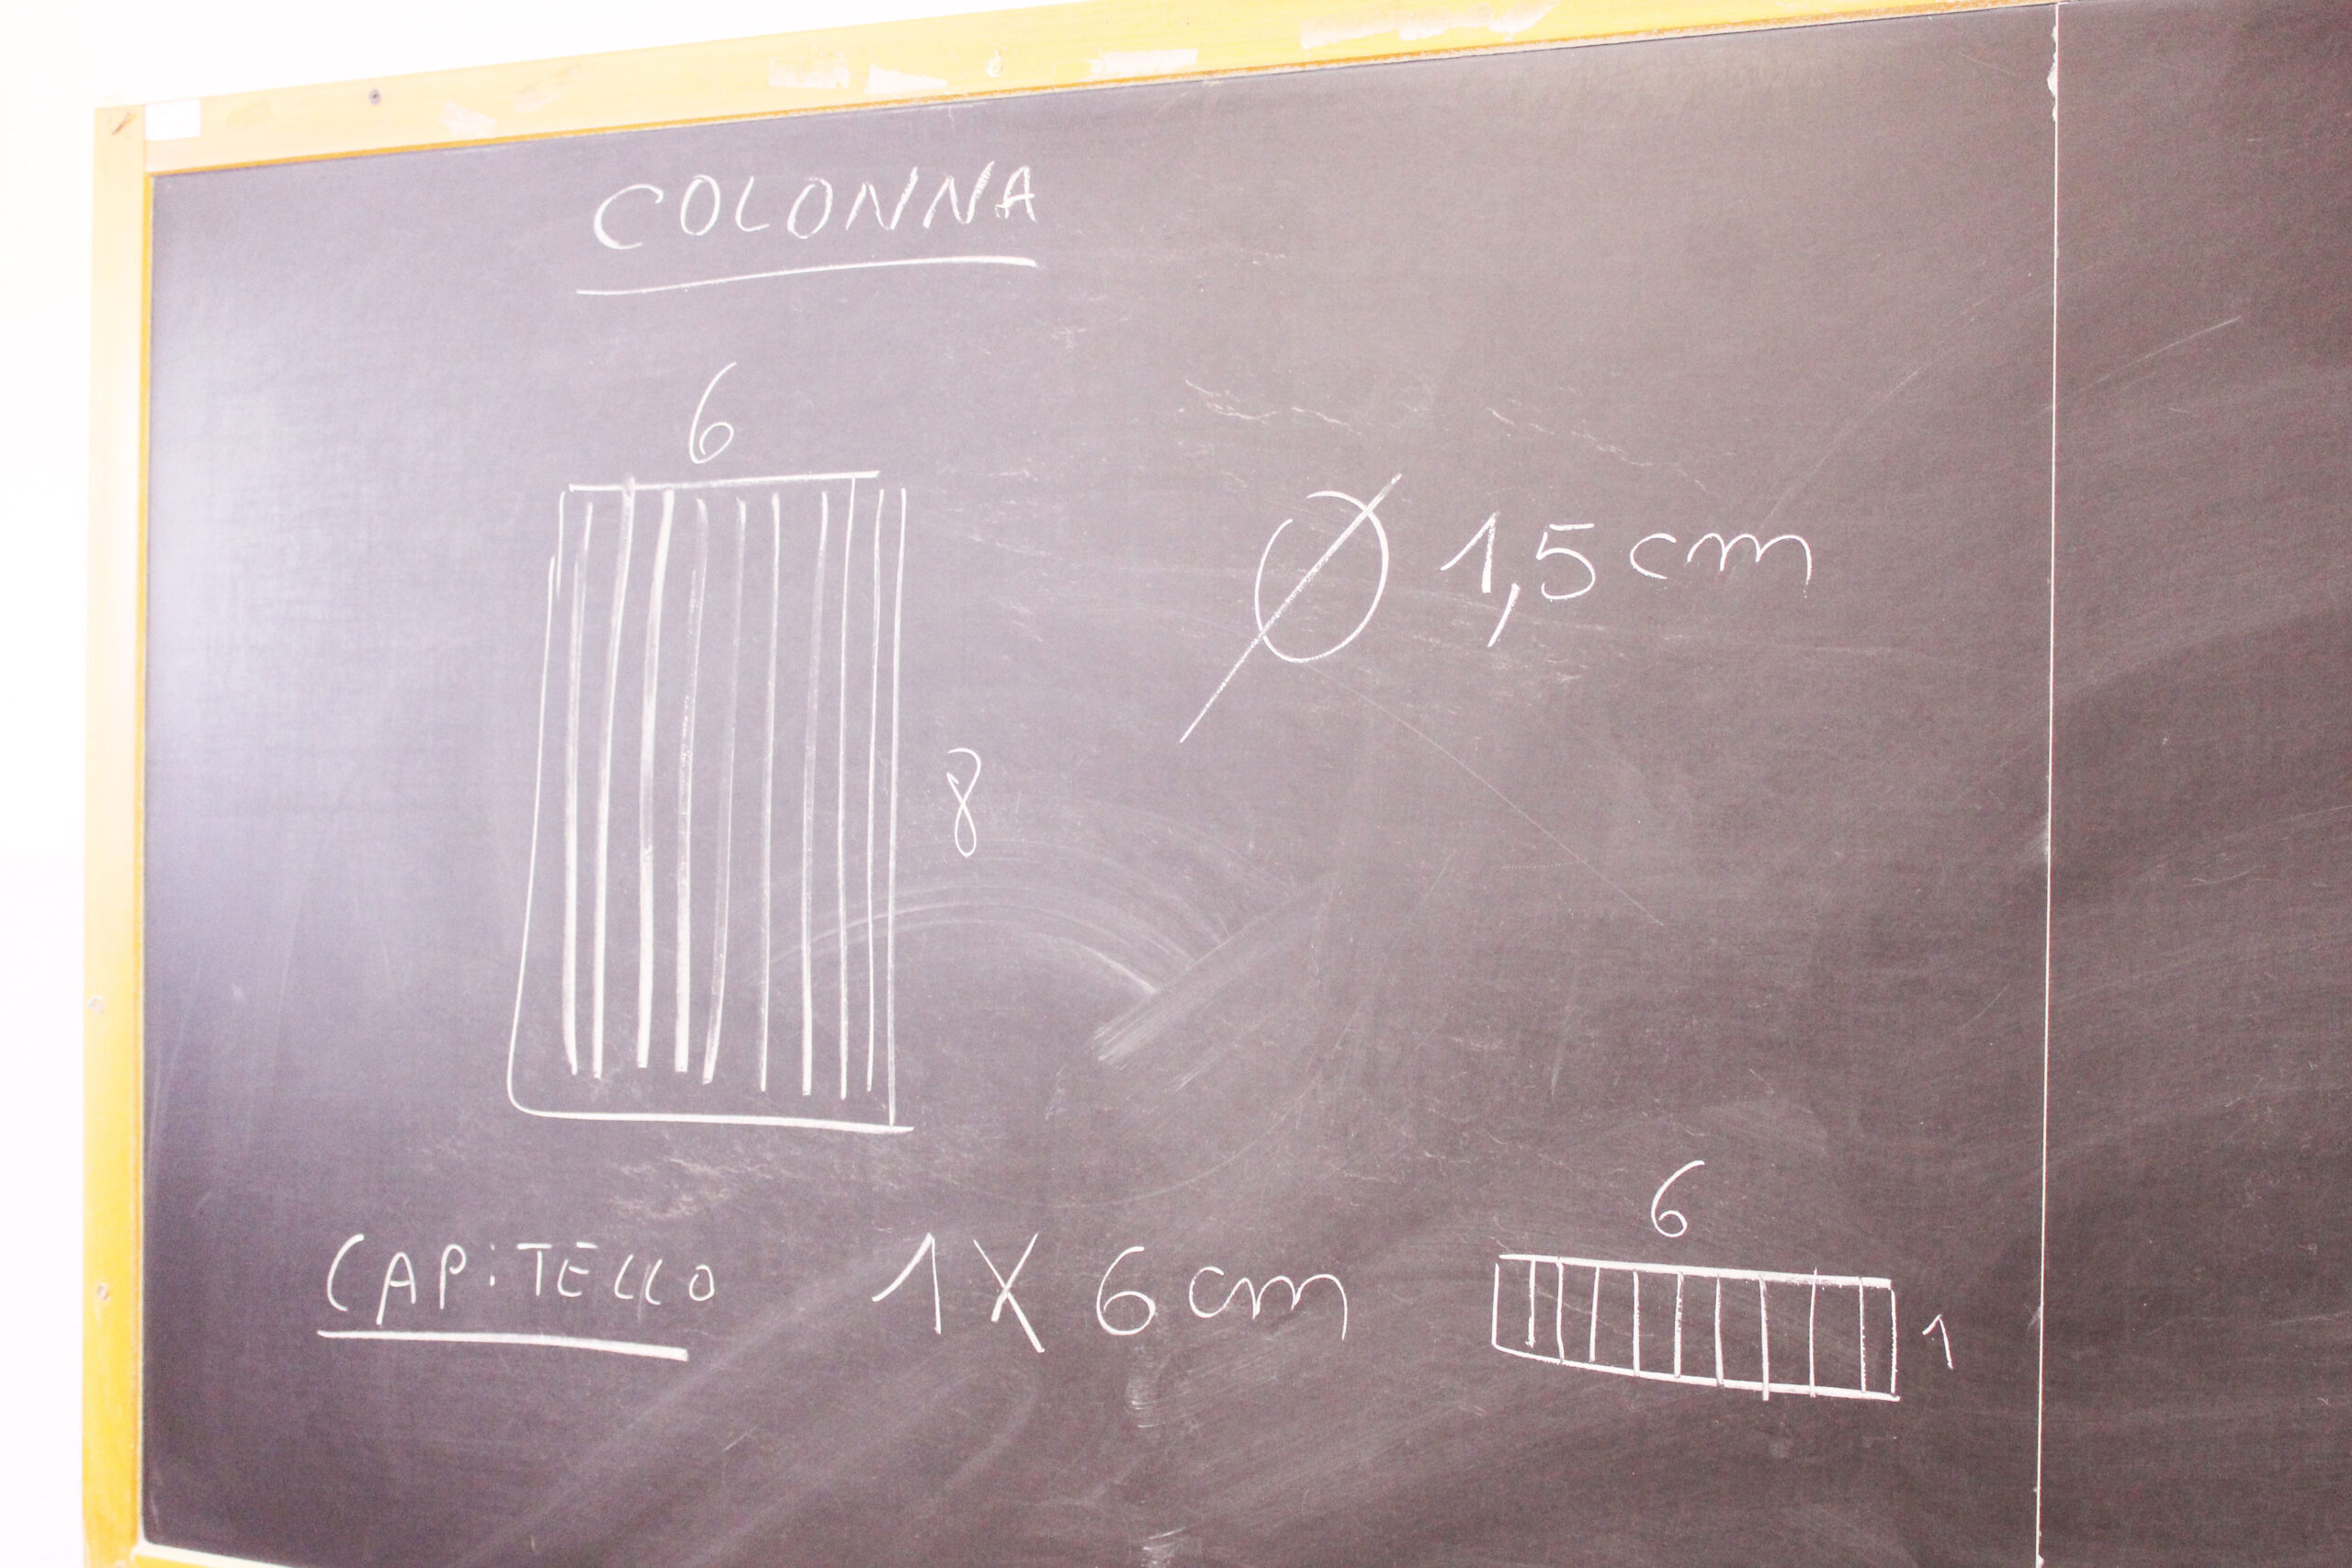 COLONNA
6
Ø 1,5 cm
8
CAPiTELLO 1 X 6 cm
6
1